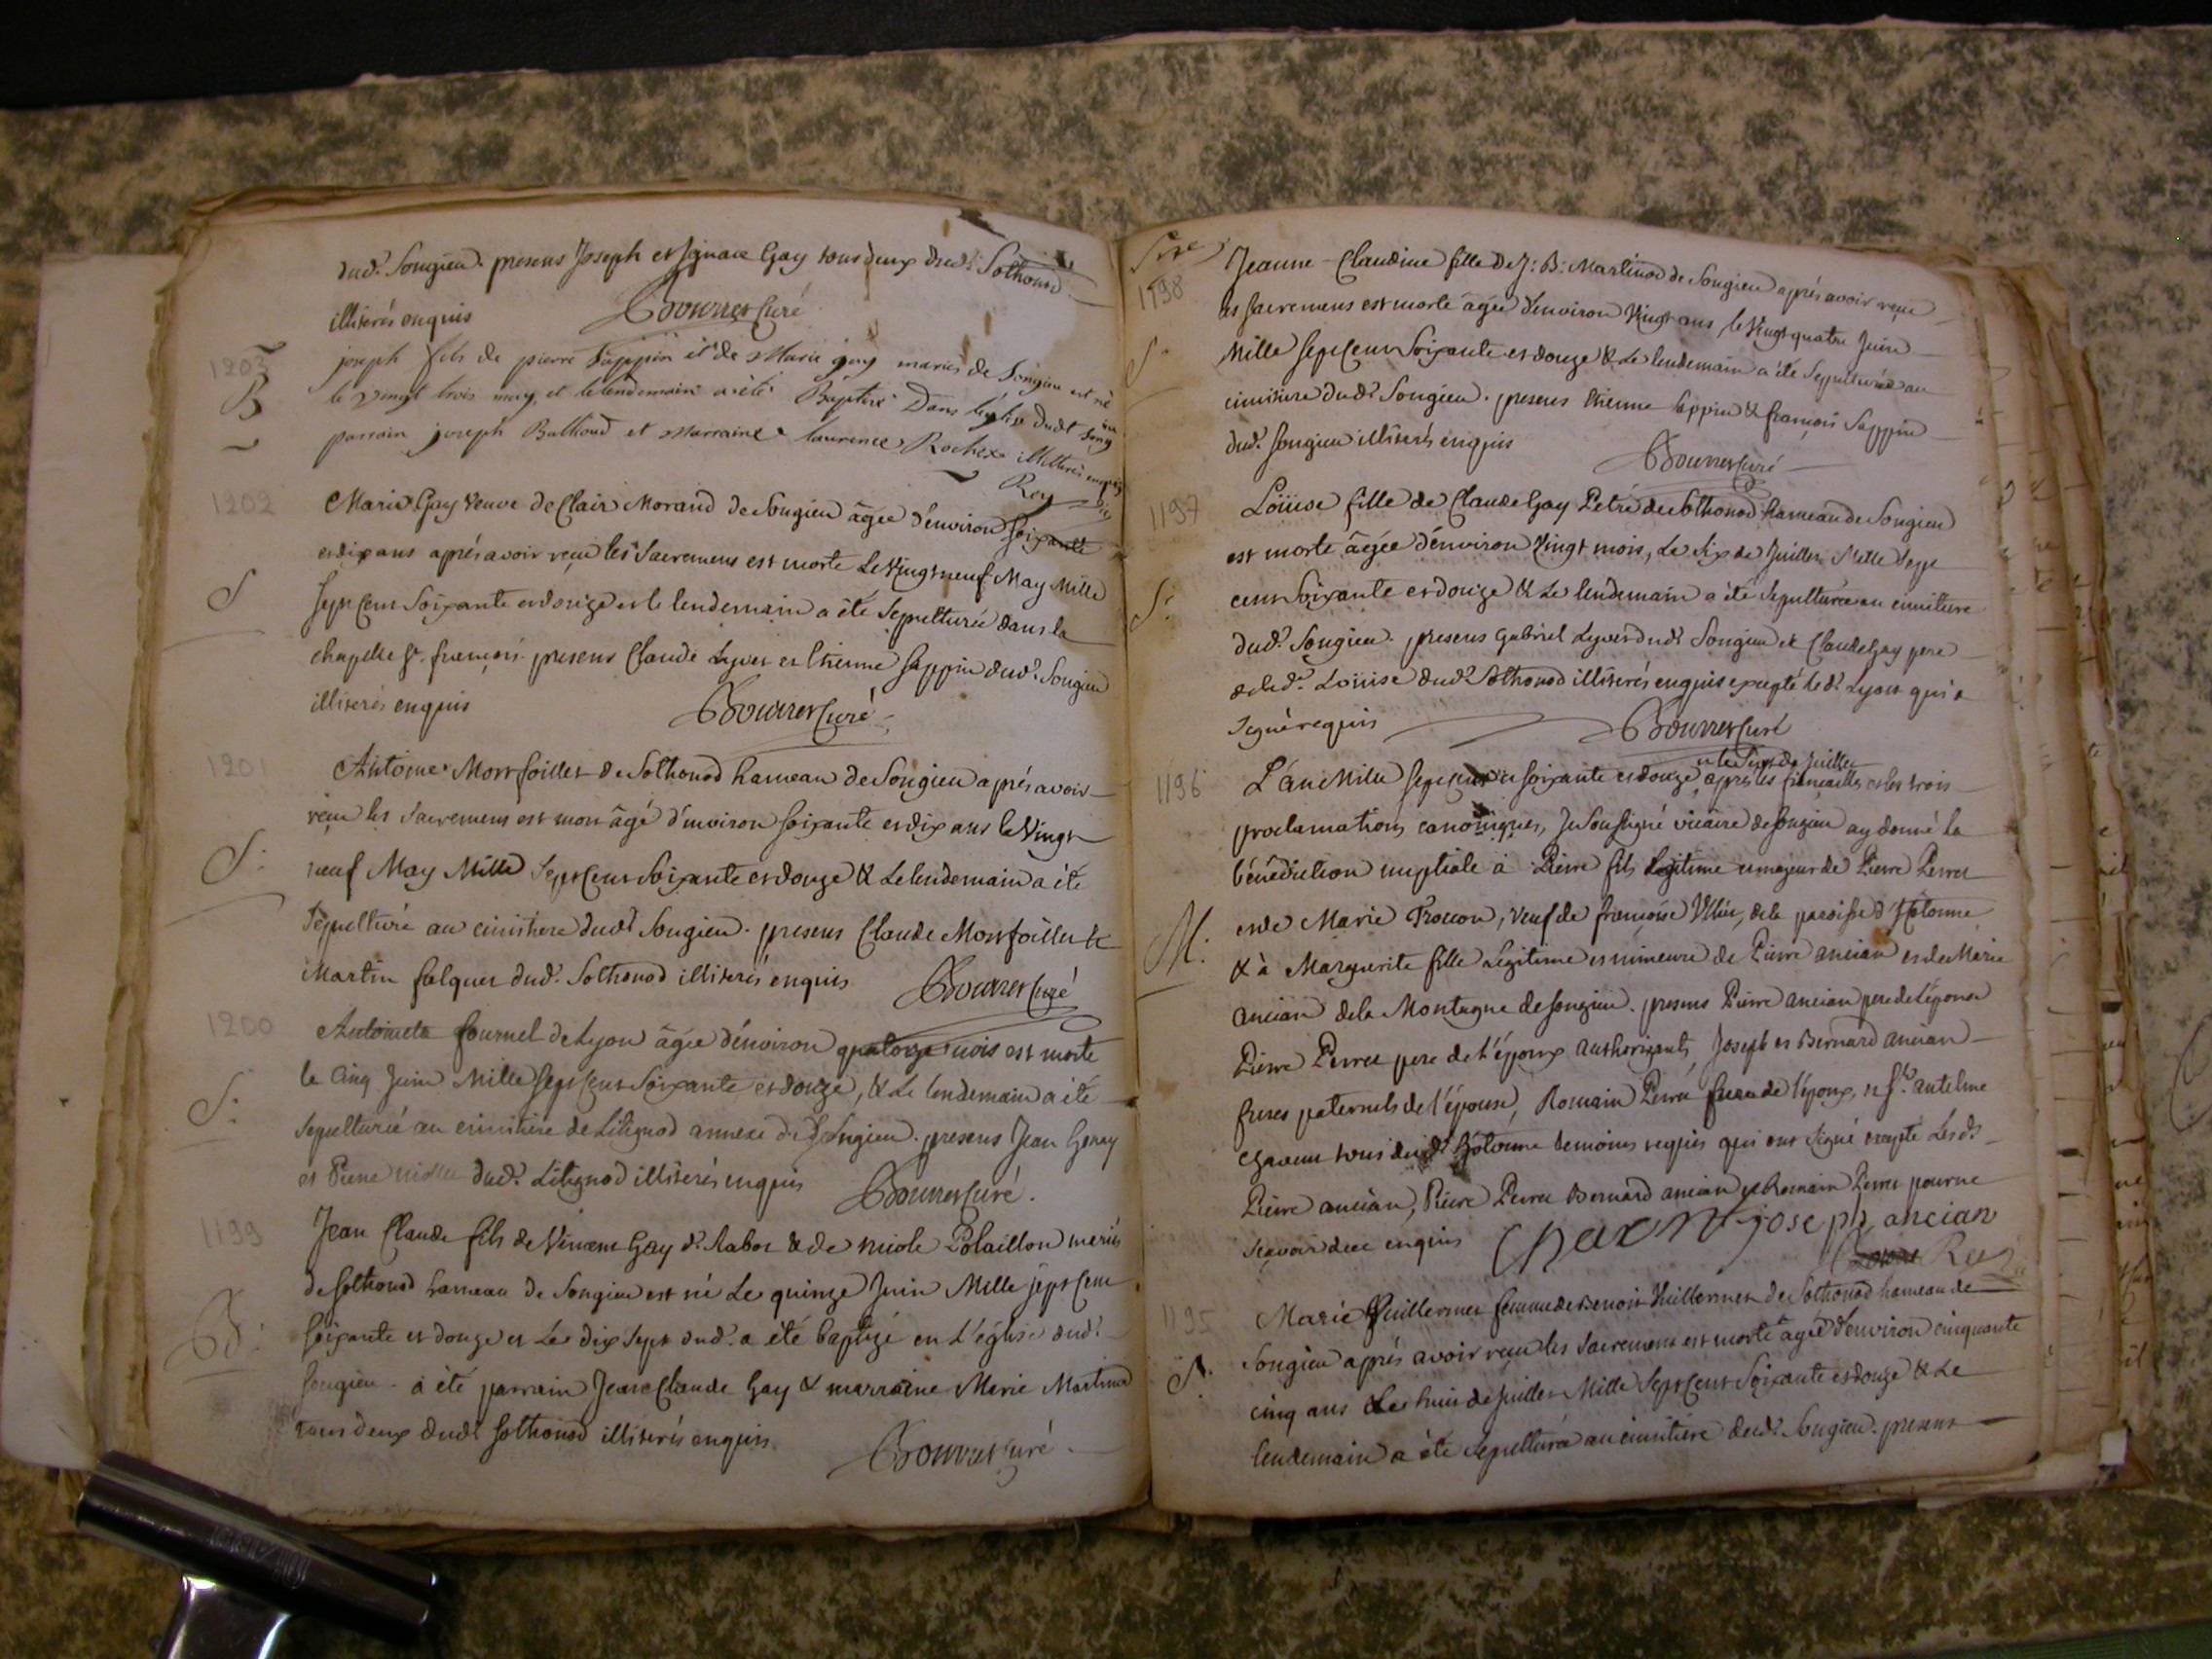 dud.t Songieu. presens Joseph et Ignace Gay tous deux dud.t Sothonod
illiterés enquis Bourret Curé
1203
B
joseph fils de pierre Sappin et de Marie gay mariés de Songieu est né
le vingt trois may et le lendemain a été Baptisé Dans l'eglise dudt Song
parrain joseph Balthod et Marraine laurence Rochex illiterés enquis
Rey
1202
S
Marie Gay veuve de Clair Morand de Songieu âgée d'environ soixante
et dix ans aprés avoir reçu les Sacremens est morte le vingt neuf May Mille
sept cent soixante et douze et le lendemain a été Sepulturée dans la
chapelle St. françois. presens Claude Lyvet et Etienne Sappin dud.t Songieu
illiterés enquis Bourret Curé
1201
S.
Antoine Montfoillet de Sothonod hameau de Songieu aprés avoir
reçu les Sacremens est mort âgé d'environ soixante et dix ans le vingt
neuf May Mille Sept Cent Soixante et douze & le lendemain a été
Sepulturé au cimitiere dudt Songieu. presens Claude Montfoillet &
Martin falquet dud.t Sothonod illiterés enquis Bourret Curé
1200
S.
Antoineta fournel de Lyon âgée d'environ quatorze mois est morte
le cinq Juin Mille Sept Cent Soixante et douze, & le lendemain a été
Sepulturée au cimitiere de Lilignod annexe de Songieu. presens Jean Genay
et Pierre dud.t Lilignod illiterés enquis Bourret Curé.
1199
B.
Jean Claude fils de Vincent Gay d.t Rabot & de Nicole Polaillon mariés
de Sothonod hameau de Songieu est né le quinze Juin Mille sept Cent
soixante et douze et le dix Sept dud.t a été baptizé en l'église dud.t
Songieu. a été parrain Jean Claude Gay & marraine Marie Martinod
tous deux dudt Sothonod illiterés enquis. Bourret Curé.
1198
S.
Jeanne-Claudine fille de J: B: Martinod de Songieu aprés avoir reçu
les sacremens est morte âgée d'environ vingt ans, le vingt quatre Juin
Mille Sept Cent Soixante et douze & le lendemain a été Sepulturée au
cimitiere dudt Songieu. presens Etienne Sappin & françois Sappin
dud.t Songieu illiterés enquis Bourret Curé
1197
S.
Loüise fille de Claude Gay Petré de Sothonod hameau de Songieu
est morte âgée d'environ vingt mois, le six de Juillet Mille Sept
cent Soixante et douze & le lendemain a été Sepulturée au cimitiere
dud.t Songieu. presens Gabriel Lyvet dudt Songieu et Claude Gay pere
de lad.e Loüise dud.t Sothonod illiterés enquis excepté led.t Lyvet qui a
Signé requis Bourret Curé
1196
M.
et le sept de juillet
L'an Mille sept cent soixante et douze, aprés les fiancailles et les trois
proclamations canoniques, Je Soussigné vicaire de Songieu ay donné la
bénédiction nuptiale à Pierre fils legitime et majeur de Pierre Perret
et de Marie Troccon, veuf de françoise de la paroisse d'Hotonne
& à Marguerite fille Légitime et mineure de Pierre ancian et de Marie
ancian de la Montagne de Songieu. presens Pierre ancian pere de l'épouse
Pierre Perret pere de l'époux authorisants, Joseph et Bernard ancian
freres paternels de l'épouse, Romain Perret frere de l'époux, et antelme
Chavent tous dudt Hotonne temoins requis qui ont Signé excepté Lesdts
Pierre ancian, Pierre Perret Bernard ancian & Romain Perret pour ne
scavoir de ce enquis Chavent joseph ancian
Rey
1195
S.
Marie Vuillermet femme de Benoit Vuillermet de Sothonod hameau de
Songieu aprés avoir reçu les Sacremens est morte âgée d'environ cinquante
cinq ans le huit de Juillet Mille Sept Cent Soixante et douze & le
lendemain a été Sepulturée au cimitiere dud.t Songieu. presens